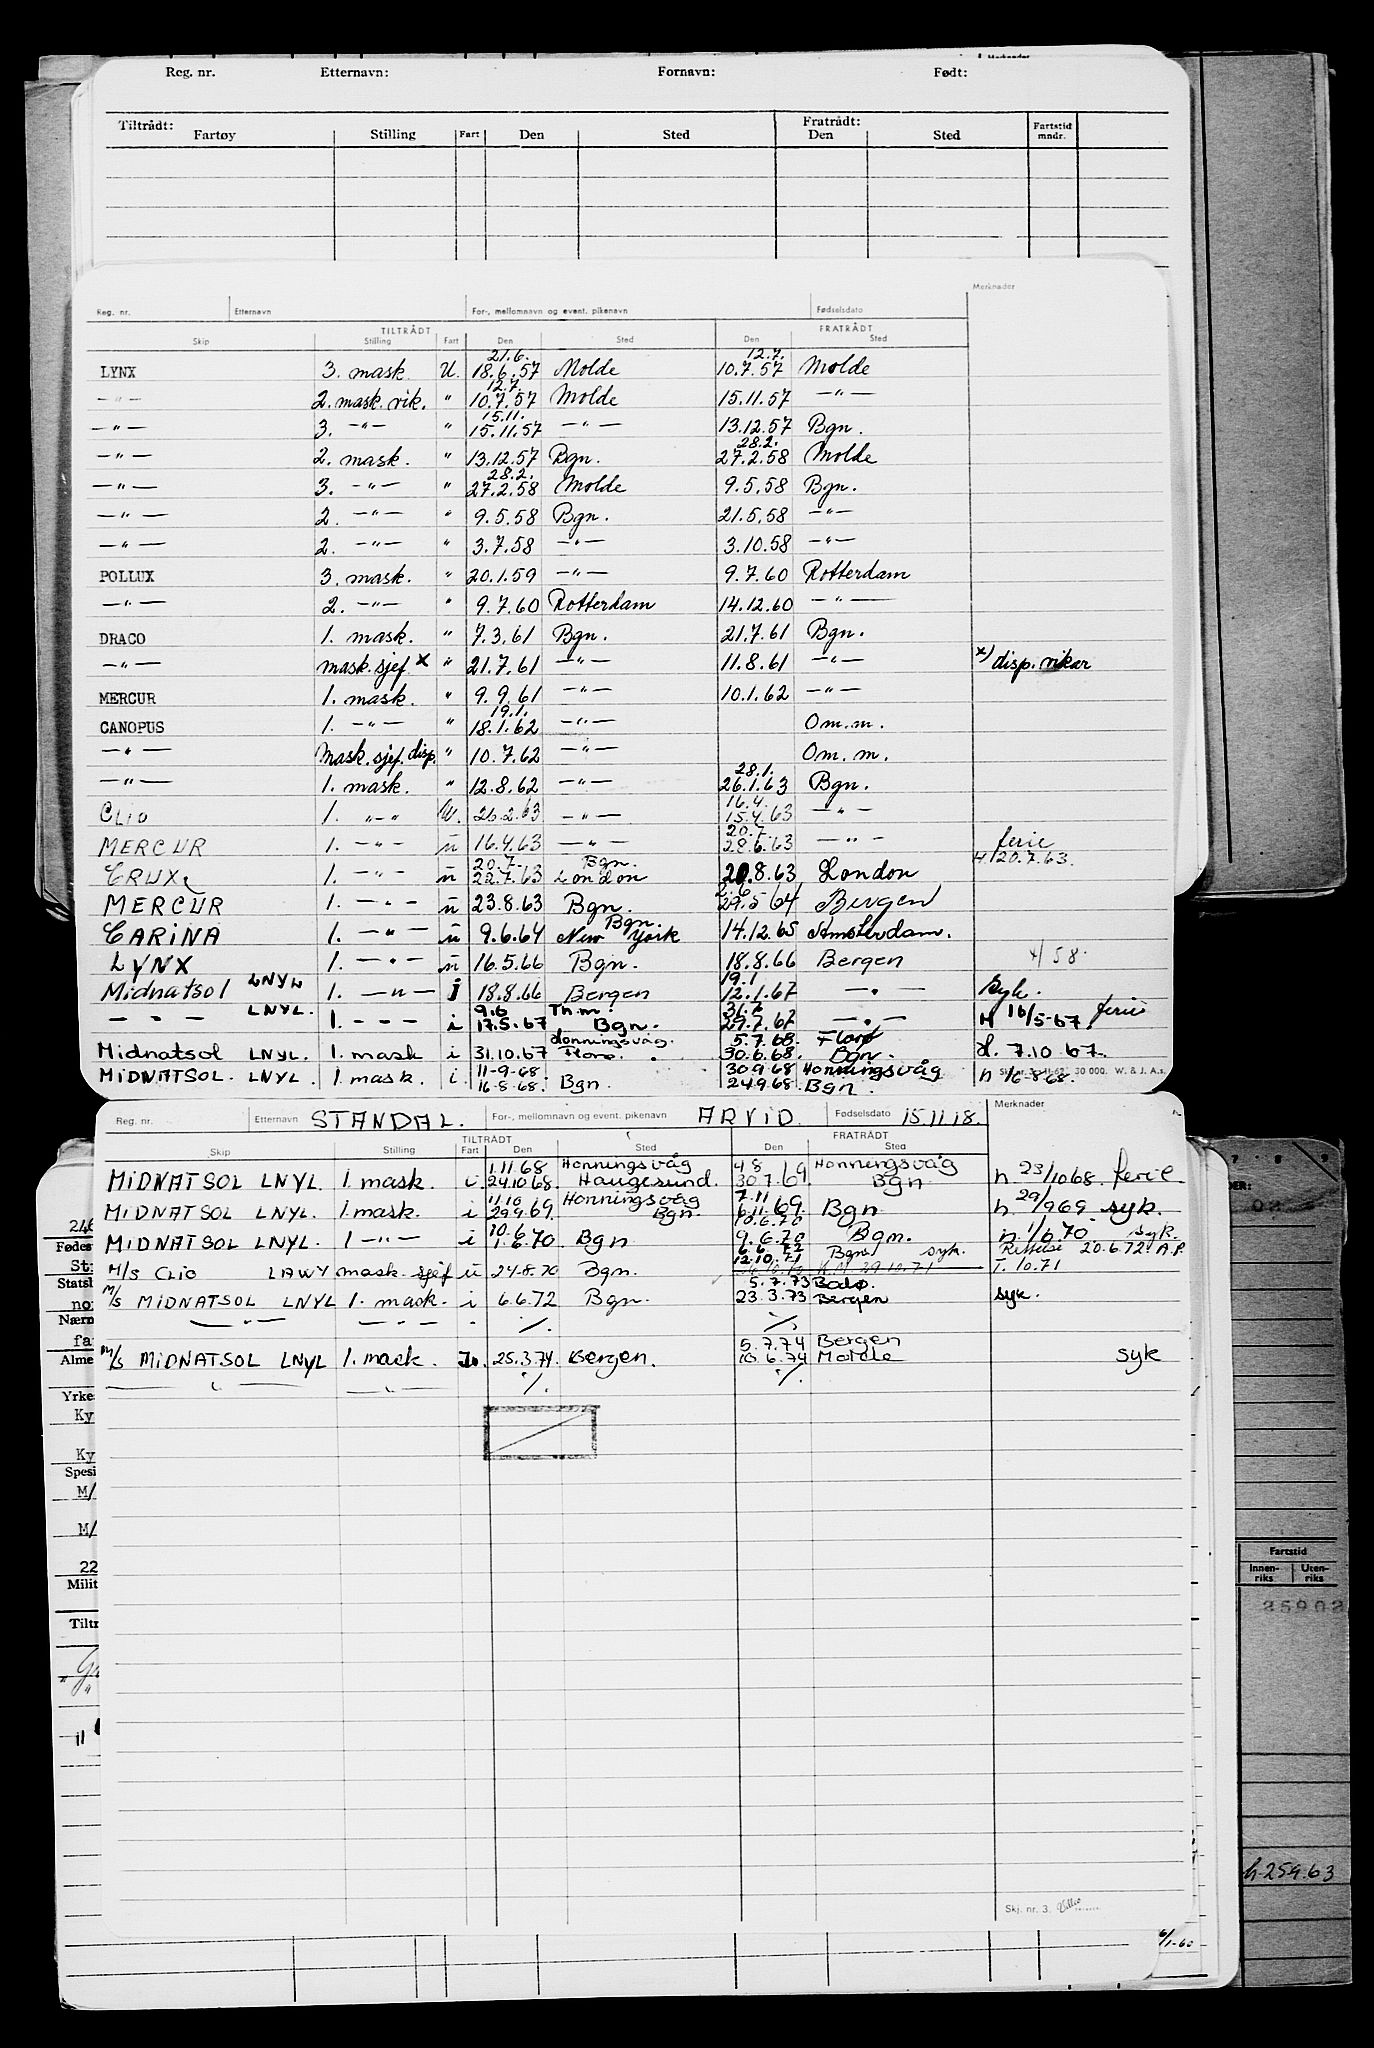 Merknader
Reg. nr. Etternavn: Fornavn: Født:
Tiltrådt: Fratrådt:
Fartøy Stilling Fart Den Sted Den Sted Fartstid mndr.
Merknader
Reg. nr. Etternavn For-, mellomnavn og event. pikenavn Fødselsdato
TILTRÅDT FRATRÅDT
Skip Stilling Fart Den Sted Den Sted
21.6. 12.7.
LYNX 3. mask. U. 18.6.57 Molde 10.7.57 Molde
12.7.
—"— 2. mask. vik. " 10.7.57 Molde 15.11.57 —"—
15.11.
—"— 3. —"— " 15.11.57 —"— 13.12.57 Bgn.
28.2.
—"— 2. mask. " 13.12.57 Bgn. 27.2.58 Molde
28.2.
—"— 3. —"— " 27.2.58 Molde 9.5.58 Bgn.
—"— 2. —"— " 9.5.58 Bgn. 21.5.58 —"—
—"— 2. —"— " 3.7.58 —"— 3.10.58 —"—
POLLUX 3. mask. " 20.1.59 —"— 9.7.60 Rotterdam
—"— 2. —"— " 9.7.60 Rotterdam 14.12.60 —"—
DRACO 1. mask. " 7.3.61 Bgn. 21.7.61 Bgn.
—"— mask. sjef x " 21.7.61 —"— 11.8.61 —"— x) disp. vikar
MERCUR 1. mask. " 9.9.61 —"— 10.1.62 —"—
19.1.
CANOPUS 1. —"— " 18.1.62 —"— Om.m.
—"— Mask. sjef. disp. " 10.7.62 —"— Om. m.
28.1.
—"— 1. mask. " 12.8.62 —"— 26.1.63 Bgn.
16.4.
CLIO 1. "—" U. 26.2.63 —"— 15.4.63 —"—
20.7.
MERCUR 1. —"— u 16.4.63 —"— 28.6.63 —"— ferie
H 20.7.63.
20.7. Bgn.
CRUX 1. —"— u 22.7.63 London 20.8.63 London
2.6
MERCUR 1. —"— u 23.8.63 Bgn. 29.5 64 Bergen
Bgn.
CARINA 1. —"— u 9.6.64 New York 14.12.65 Amsterdam.
LYNX 1. —"— u 16.5.66 Bgn. 18.8.66 Bergen 4/58.
19.1
Midnatsol LNYL 1. —"— i 18.8.66 Bergen 12.1.67 —"— Syk.
9.6 Th.m.
— " — LNYL. 1. —"— i 17.5.67 Bgn. 29.7.67 —"— H 16/5-67 ferie
Honningsvåg. 5.7.68. Florø
Midnatsol LNYL. 1. mask i 31.10.67 Florø. 30.6.68. Bgn. d. 7.10 67.
11-9-68 30.9.68 Honningsvåg
MIDNATSOL. LNYL. 1. mask. i. 16-8-68. Bgn. 24.9.68. Bgn. h 16-8-68.
30 000. W. & J. A.s.
Reg. nr. Etternavn STANDAL. For-, mellomnavn og event. pikenavn ARVID. Fødselsdato 15.11.18. Merknader
TILTRÅDT FRATRÅDT
Skip Stilling Fart Den Sted Den Sted
1.11.68 Honningsvåg 4 8 Honningsvåg
MIDNATSOL LNYL. 1. mask. i 24.10 68. Haugesund. 30.7.69. Bgn h 23/10 68. ferie
11.10 Honningsvåg 7.11
MIDNATSOL LNYL. 1. mask. i 29.9.69. Bgn. 6.11.69. Bgn h. 29/9 69 syk.
10.6 10.6.70
MIDNATSOL LNYL. 1 —"— i 1.6.70 Bgn 9.6.70 Bgn. n. 1/6.70. syk.
6.6.72 Bgn. syk. Rettelse 20.6.72 A.P.
12.10.71
M/S CLIO LAWY mask. sjef ü 24.8.70 Bgn. K.M. 29.10.71 T. 10.71
5.7.73 Bodø.
M/S MIDNATSOL LNYL 1. mask. i 6.6.72 Bgn. 23.3.73 Bergen syk.
—"— —"— ./. ./.
5.7.74 Bergen
M/S MIDNATSOL LNYL 1. mask. 25.3.74. Bergen. 10.6.74 Molde syk
—"— —"— ./. ./.
Skj. nr. 3.
Fødes
St
Statsb
no
Nærm
fa
Alme
Yrke
Ky
Ky
Spesi
M/
M/
22
Milit
Tiltr
il
7 8 9
Fartstid
Innen-riks Uten-riks
35902
h.259.63
6/1-60